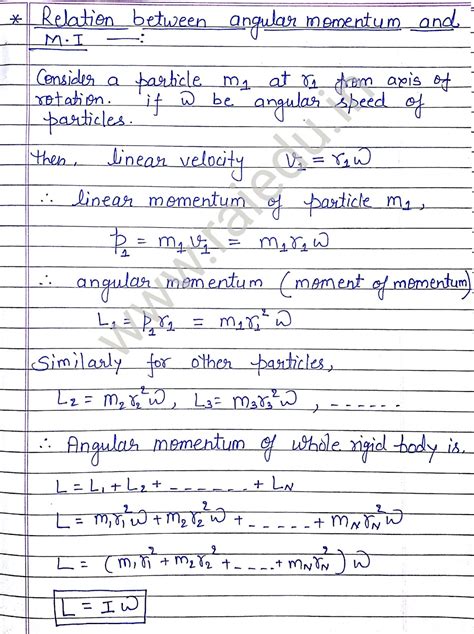 * Relation between angular momentum and
M.I —:
Consider a particle m₁ at r₁ from axis of
rotation. if ω be angular speed of
particles.
then, linear velocity v₁ = r₁ω
∴ linear momentum of particle m₁,
p₁ = m₁v₁ = m₁r₁ω
∴ angular momentum (moment of momentum)
L₁ = p₁r₁ = m₁r₁²ω
Similarly for other particles,
L₂ = m₂r₂²ω, L₃ = m₃r₃²ω, ------
∴ Angular momentum of whole rigid body is.
L = L₁ + L₂ + ------ + L_N
L = m₁r₁²ω + m₂r₂²ω + ------ + m_N r_N²ω
L = (m₁r₁² + m₂r₂² + ---- + m_N r_N²) ω
L = I ω
www.rajedu.in